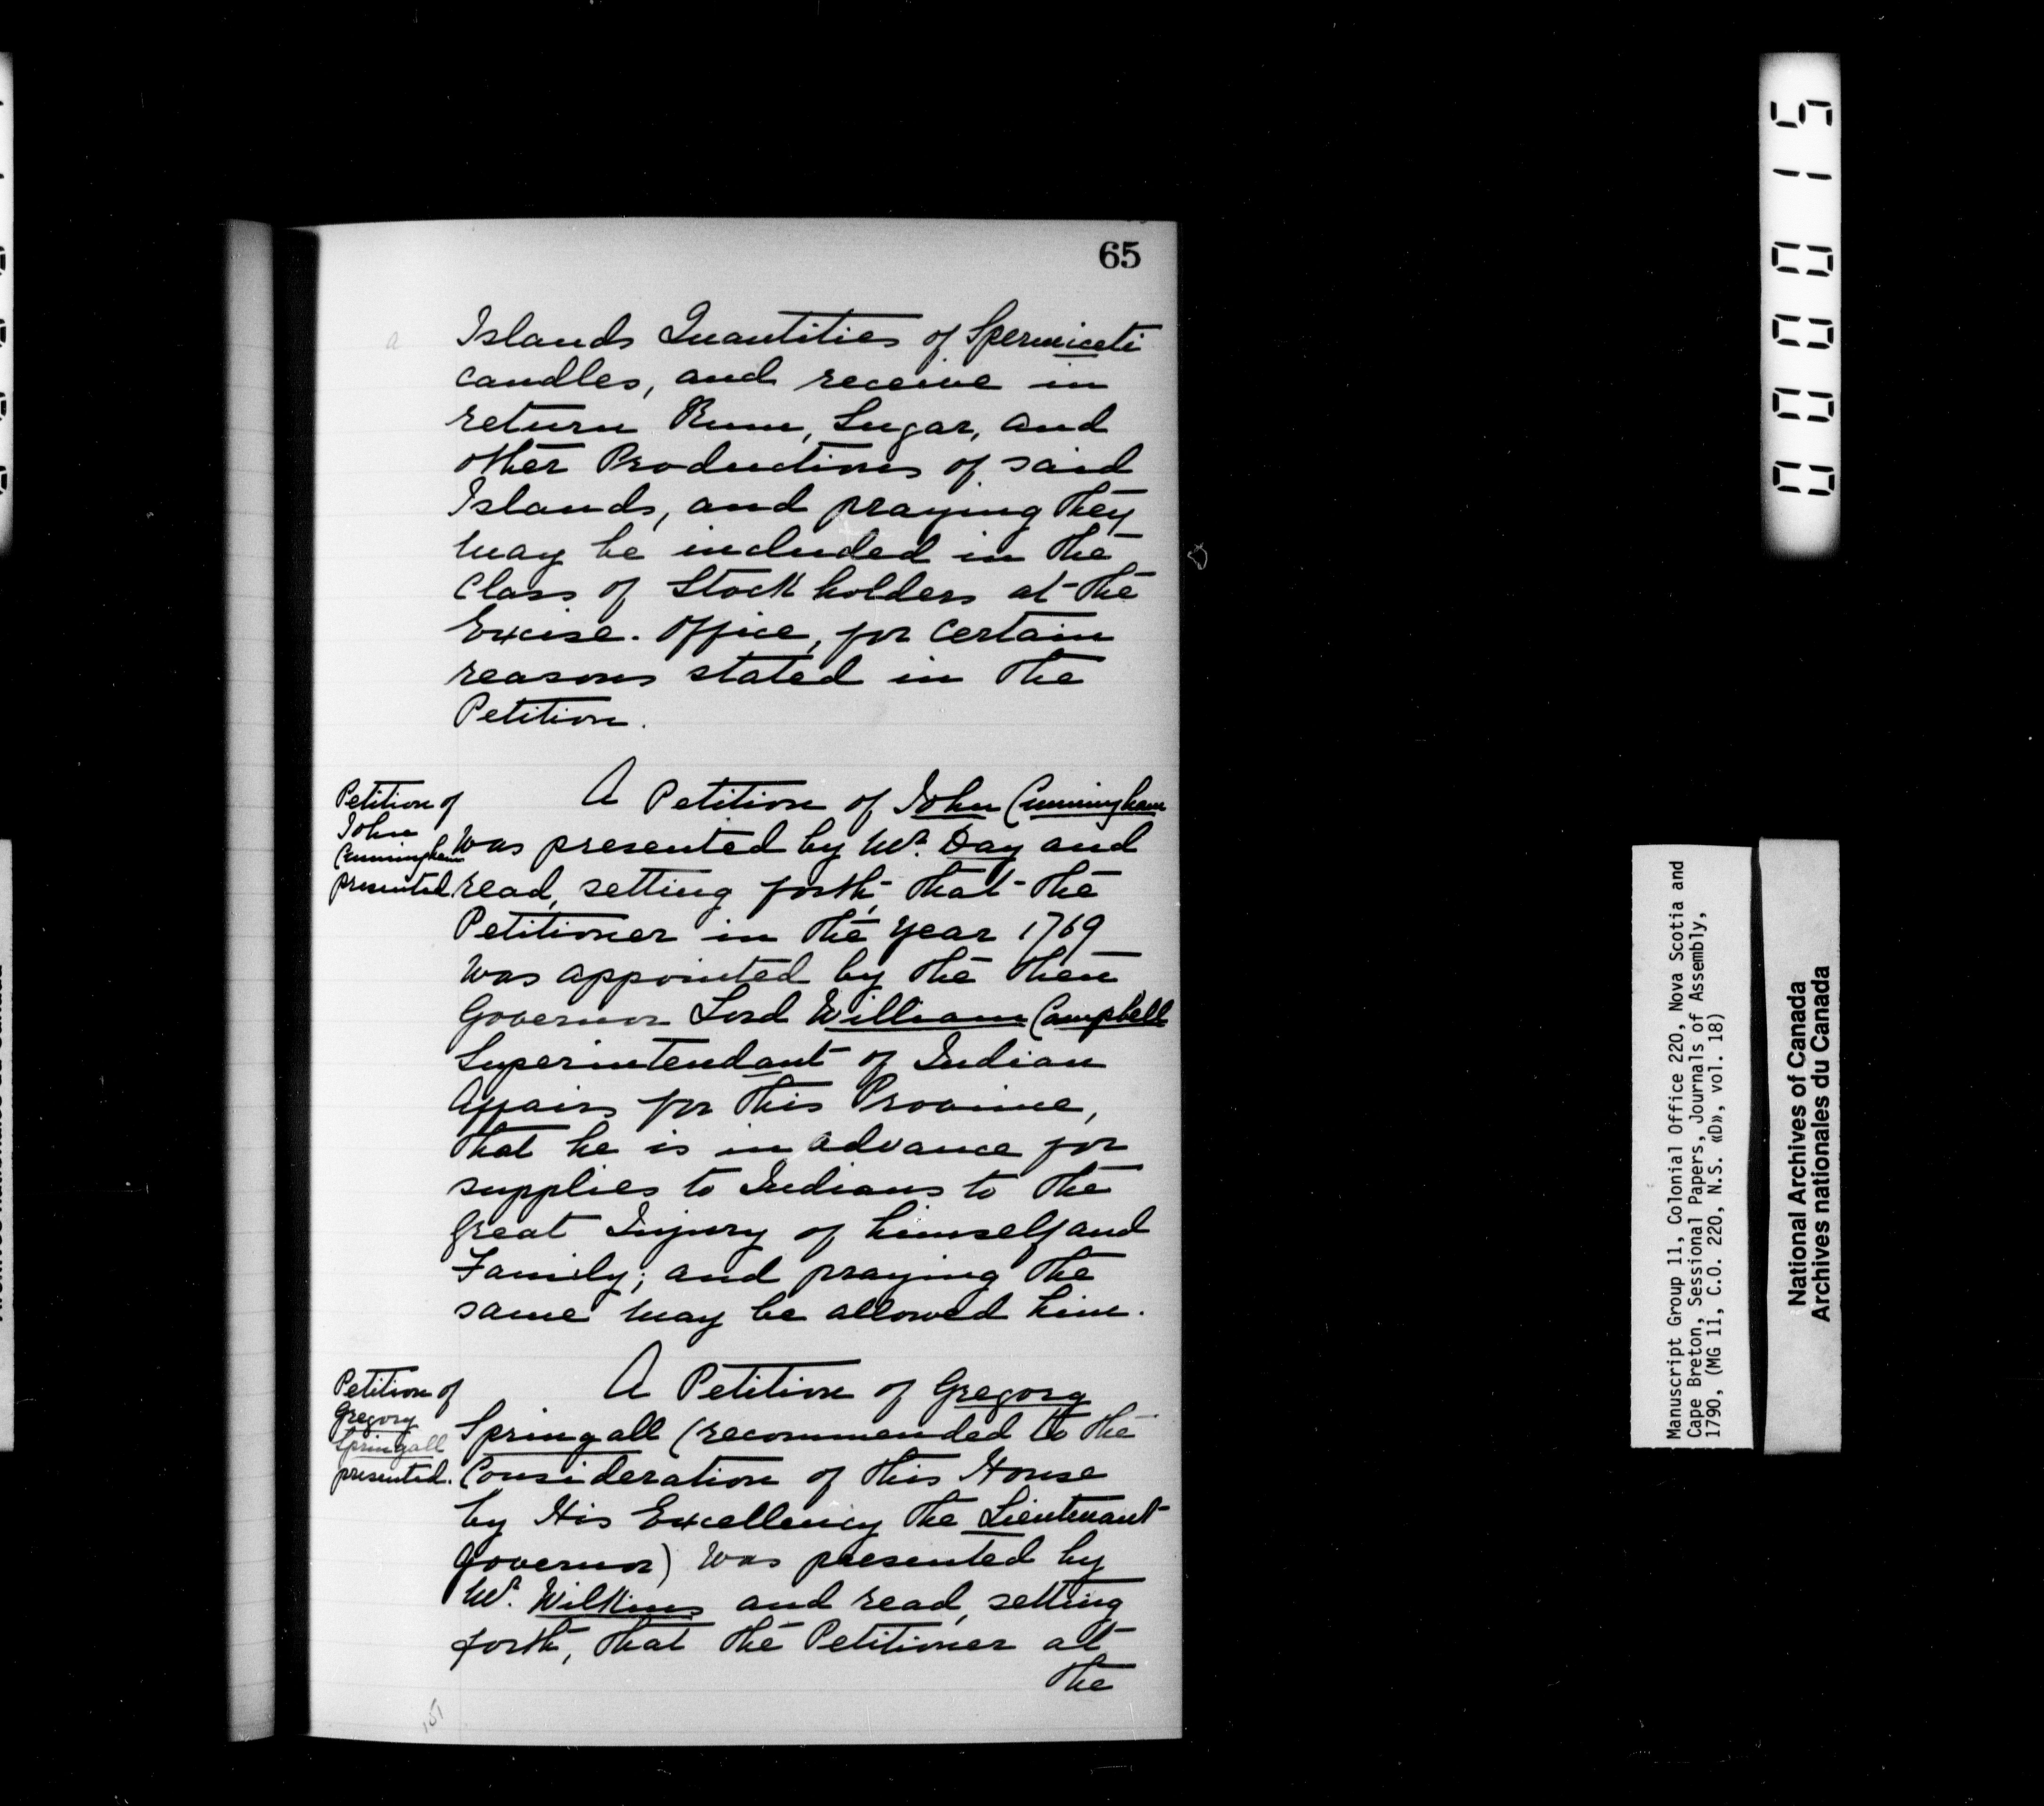 65
Islands Quantities of Spermiceti
candles, and receive in
return Rum, Sugar, and
other Productions of said
Islands, and praying they
may be included in the
Class of Stock holders at the
Excise. Office, for certain
reasons stated in the
Petition.
Petition of
John
Cunningham
presented.
A Petition of John Cunningham
was presented by Mr. Day and
read, setting forth, that the
Petitioner in the year 1769
was appointed by the then
Governor Lord William Campbell
Superintendant of Indian
Affairs for this Province,
that he is in advance for
supplies to Indians to the
great Injury of himself and
Family; and praying the
same may be allowed him.
Petition of
Gregory
Springall
presented.
A Petition of Gregory
Springall (recommended to the
Consideration of this House
by His Excellency the Lieutenant
Governor) was presented by
Mr. Wilkins and read, setting
forth, that the Petitioner at
the
151
00015
Manuscript Group 11, Colonial Office 220, Nova Scotia and
Cape Breton, Sessional Papers, Journals of Assembly,
1790, (MG 11, C.O. 220, N.S. «D», vol. 18)
National Archives of Canada
Archives nationales du Canada